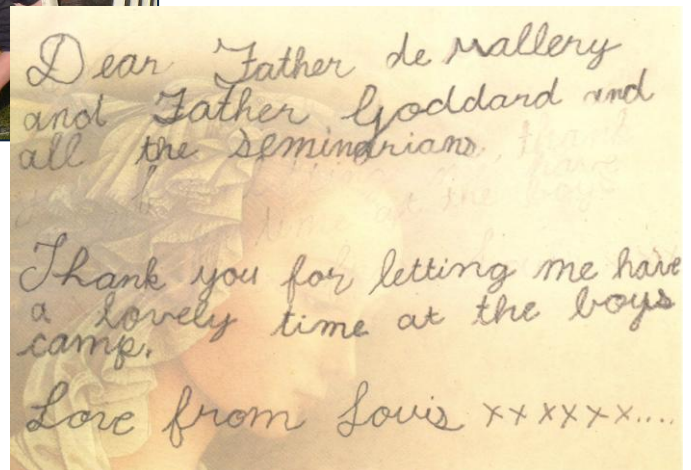 Dear Father de Mallery
and Father Goddard and
all the seminarians
Thank you for letting me have
a lovely time at the boys
camp.
Love from Louis xxxxxx....